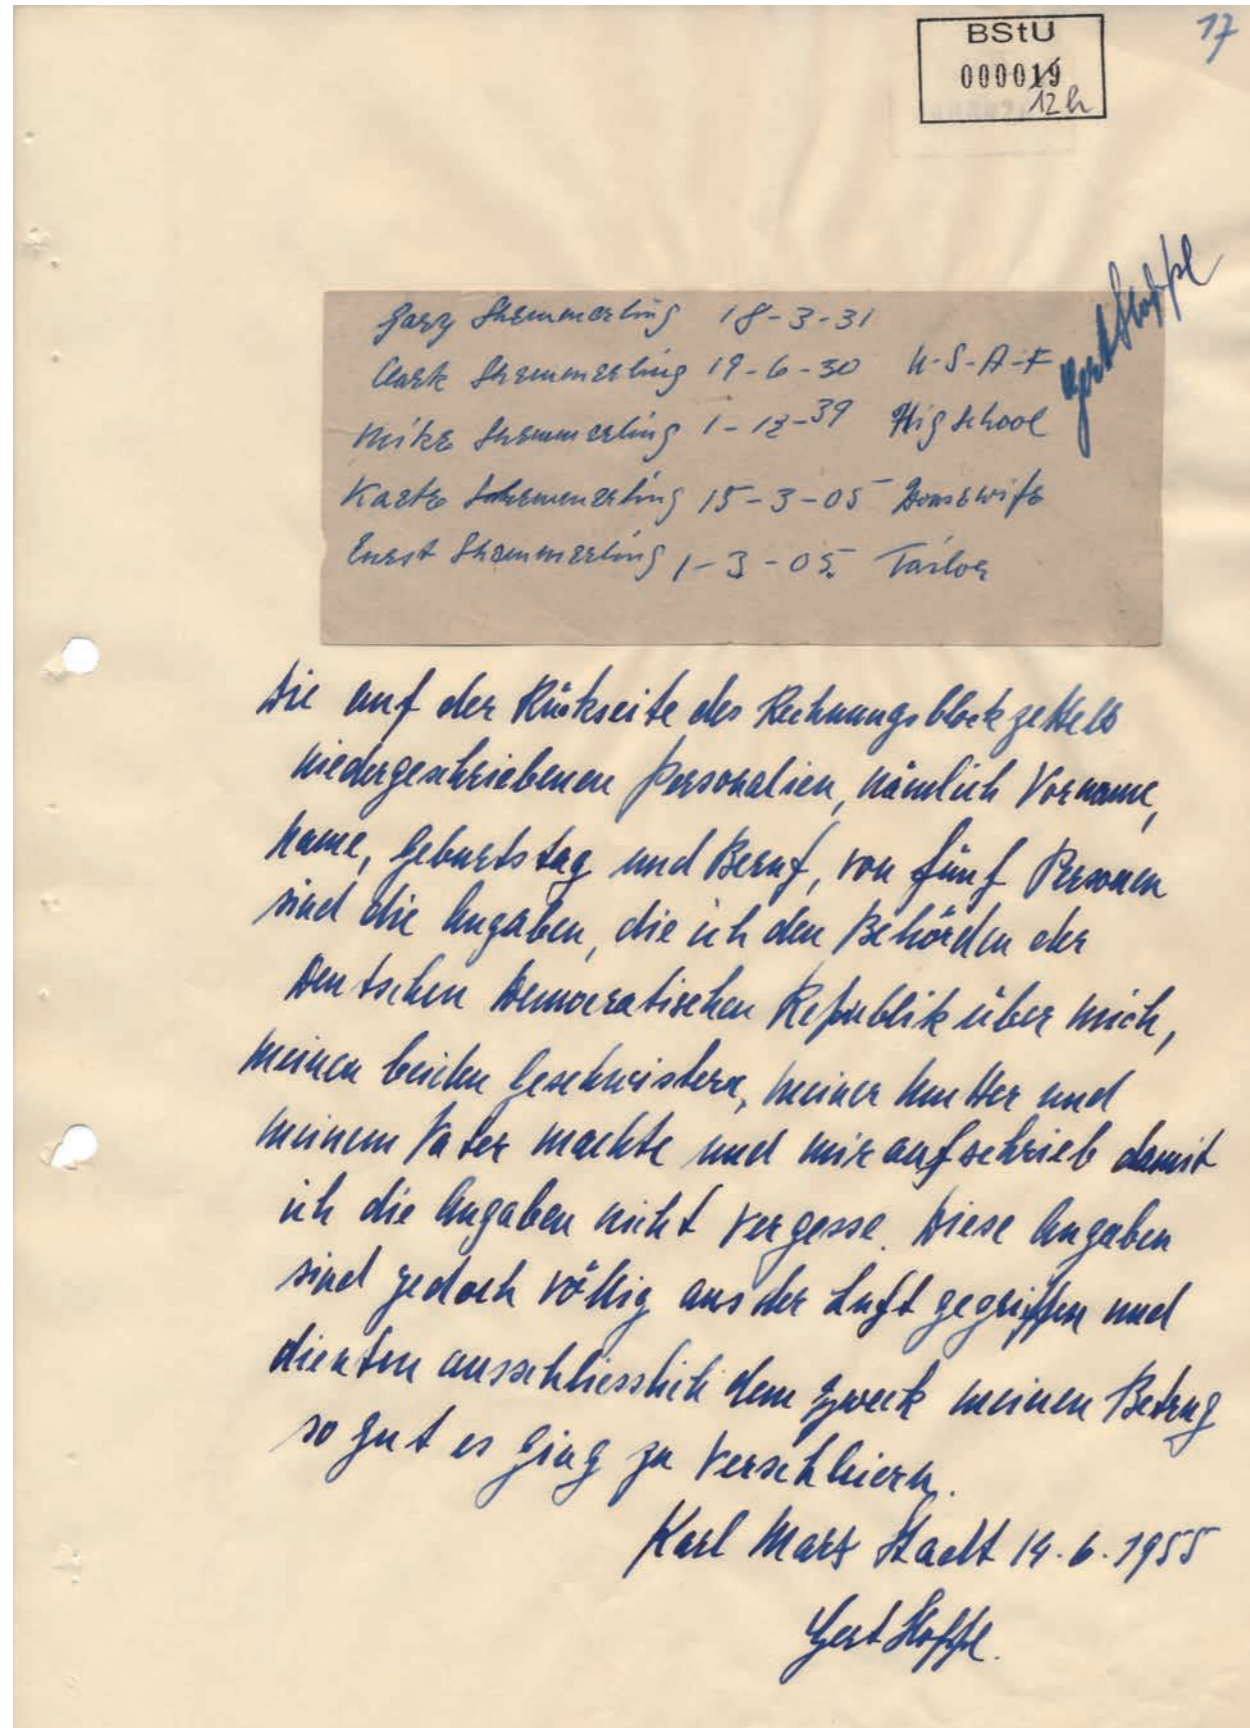 17
BStU
000019
12 h
Gary Shemmerling 18-3-31
Clark Shemmerling 19-6-30 U-S-A-F
Mike Shemmerling 1-12-39 Hig School
Kaete Shemmerling 15-3-05 Housewife
Ernst Shemmerling 1-3-05 Tailor
Die auf der Rückseite des Rechnungsblockzettels
niedergeschriebenen Personalien, nämlich Vorname,
Name, Geburtstag und Beruf, von fünf Personen
sind die Angaben, die ich den Behörden der
Deutschen Democratischen Republik über mich,
meinen beiden Geschwistern, meiner Mutter und
meinem Vater machte und mir aufschrieb damit
ich die Angaben nicht vergesse. Diese Angaben
sind jedoch völlig aus der Luft gegriffen und
dienten ausschliesslich dem Zweck meinen Betrug
so gut es ging zu verschleiern.
Karl Marx Stadt 14.6.1955
Gert